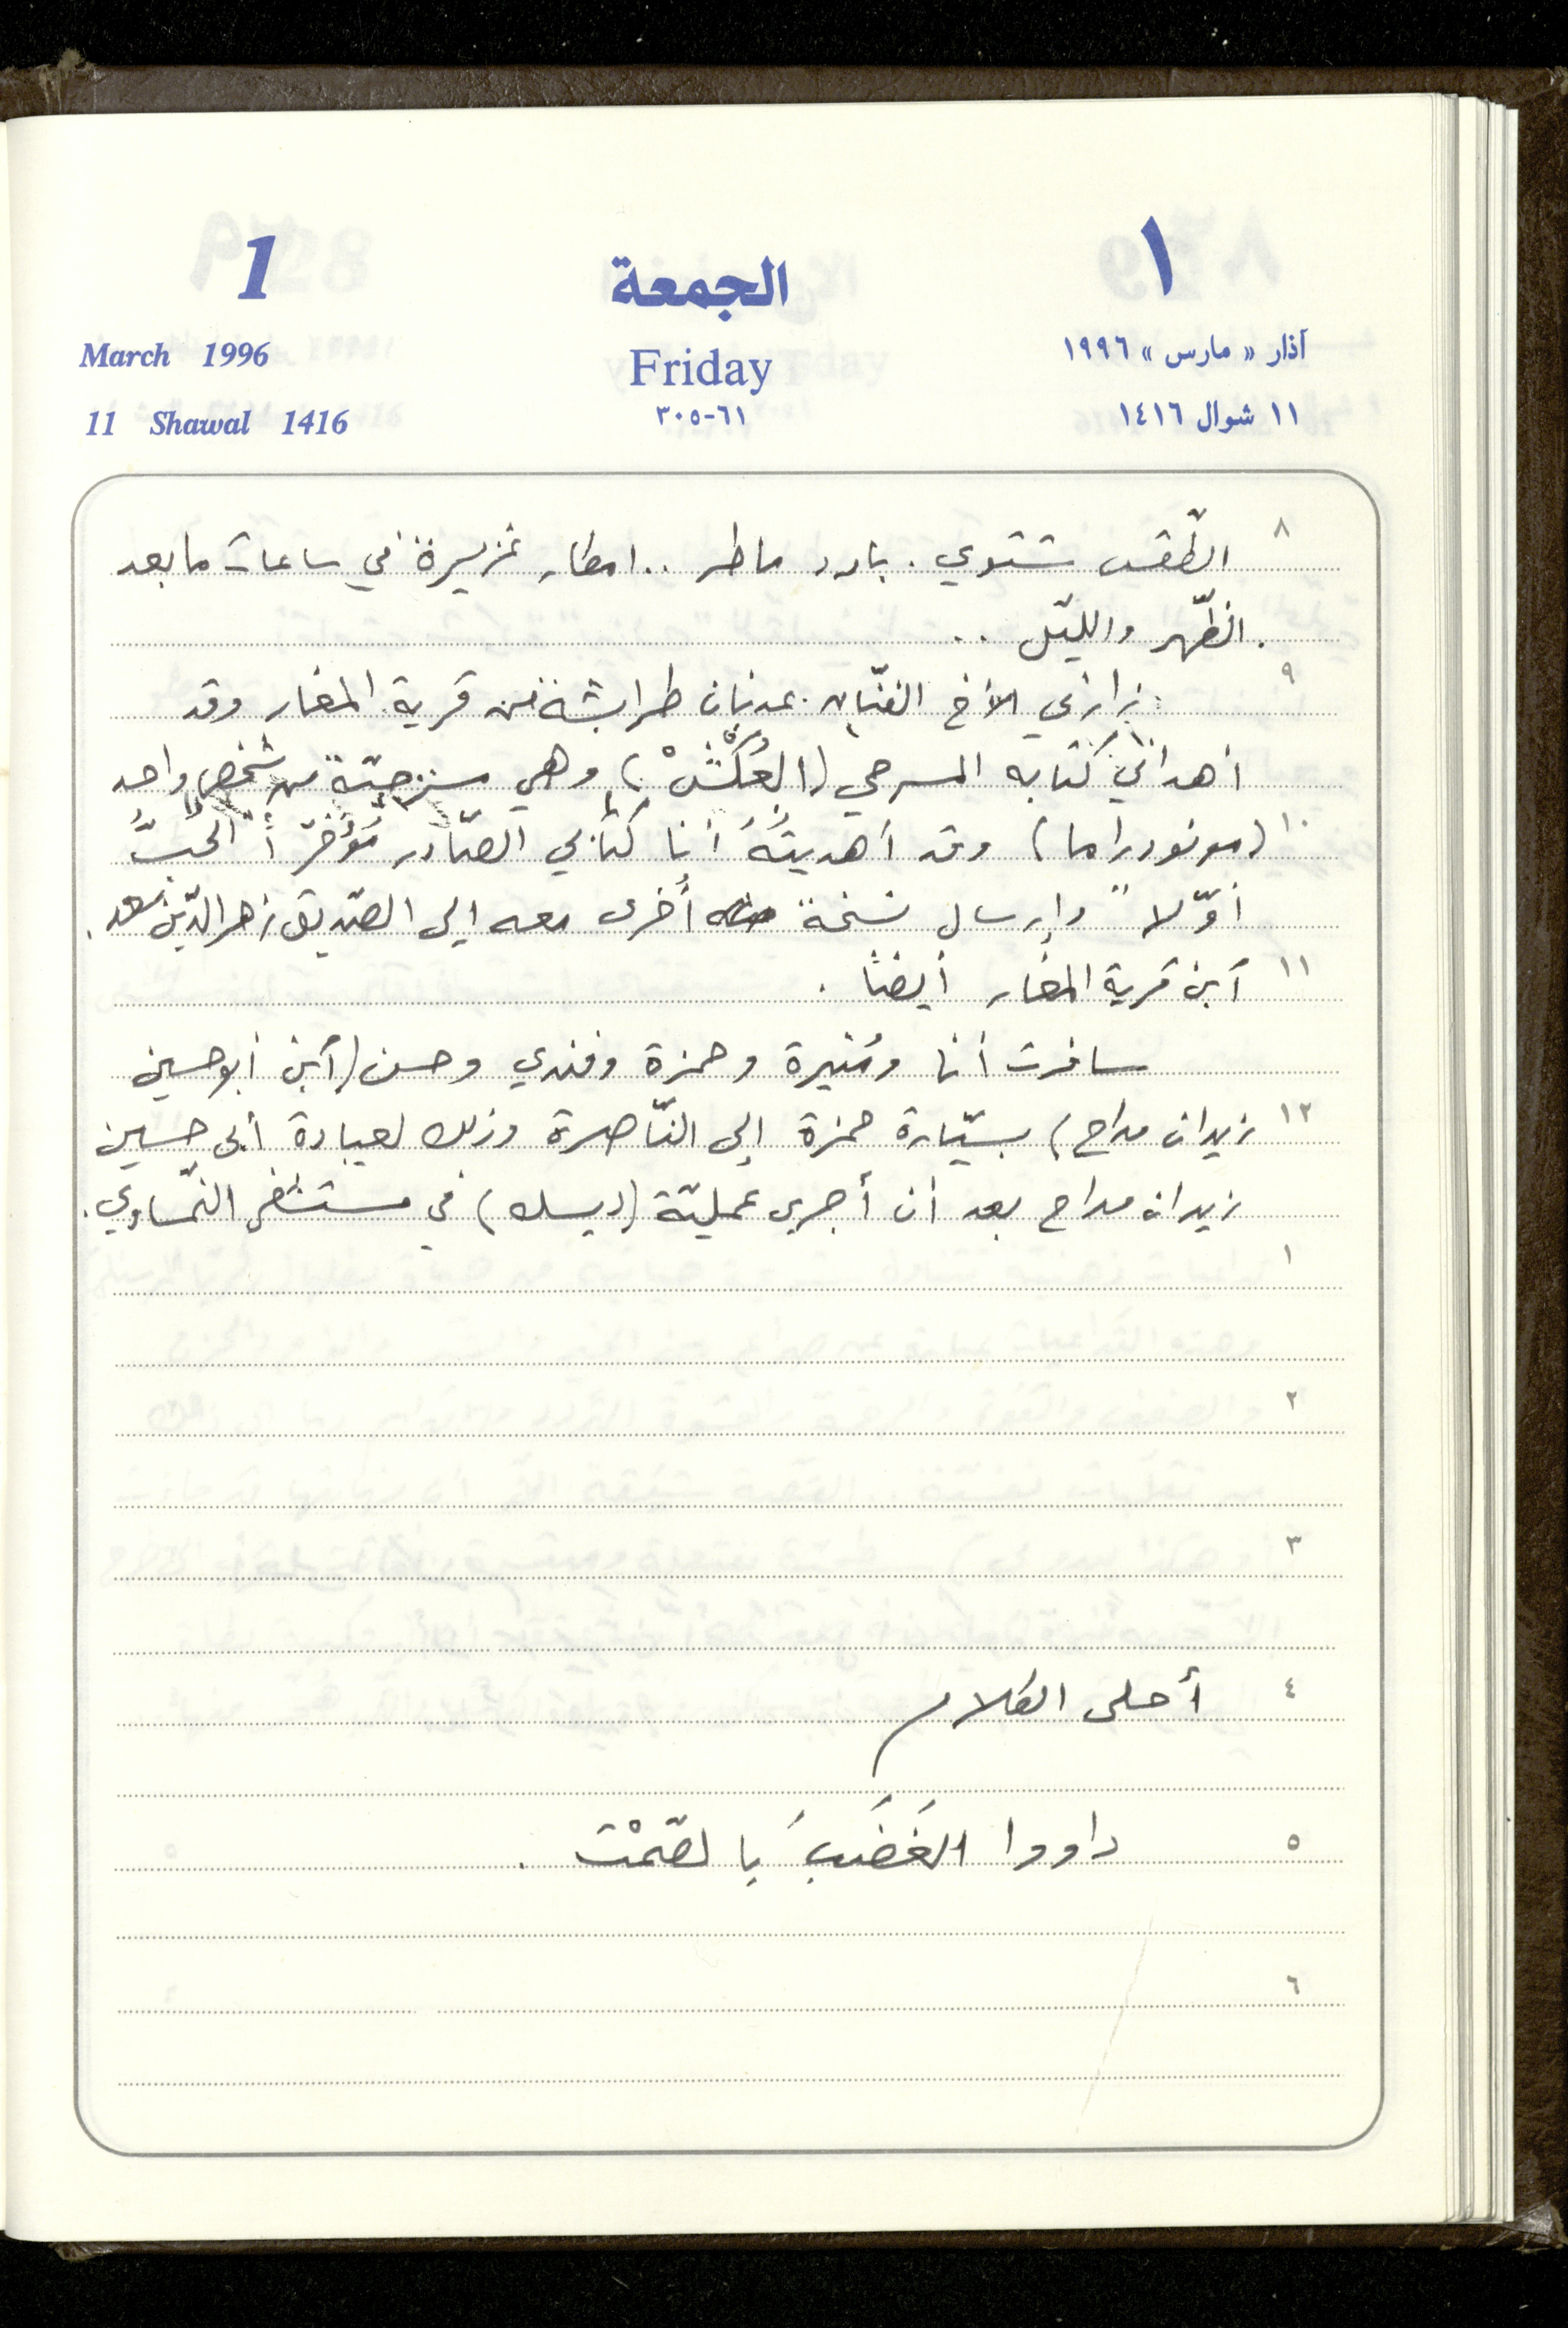 1
الجمعة
١
March 1996
Friday
آذار « مارس » ١٩٩٦
11 Shawal 1416
٣٠٥-٦١
١١ شوال ١٤١٦
٨
الطّقس شتوي . بارد ماطر .. امطار غزيرة في ساعات ما بعد
الظّهر واللّيل ..
٩
زارني الأخ الفنّان عدنان طرابشة من قرية المغار وقد
أهداني كتابه المسرحي (العُكَّشْ) وهي مسرحيّة من شخص واحد
١٠
(مونودراما) وقد أهديتُهُ أنا كتابي الصّادر مُؤخّراً "الحُبُّ
أوّلاً" وإرسال نسخة أخرى معه إلى الصّديق زهر الدّين سعد.
١١
آبن قرية المغار أيضًا .
سافرت أنا ومُنيرة وحمزة وفندي وحسن (آبن أبو حسين
١٢
زيدان مداح) بسيّارة حمزة إلى النّاصرة وذلك لعيادة أبي حسين
زيدان مداح بعد أن أجرى عمليّة (ديسك) في مستشفى النّمساوي.
١
٢
٣
٤
أحلى الكلام
٥
داووا الغَضَبَ بالصّمْت .
٦